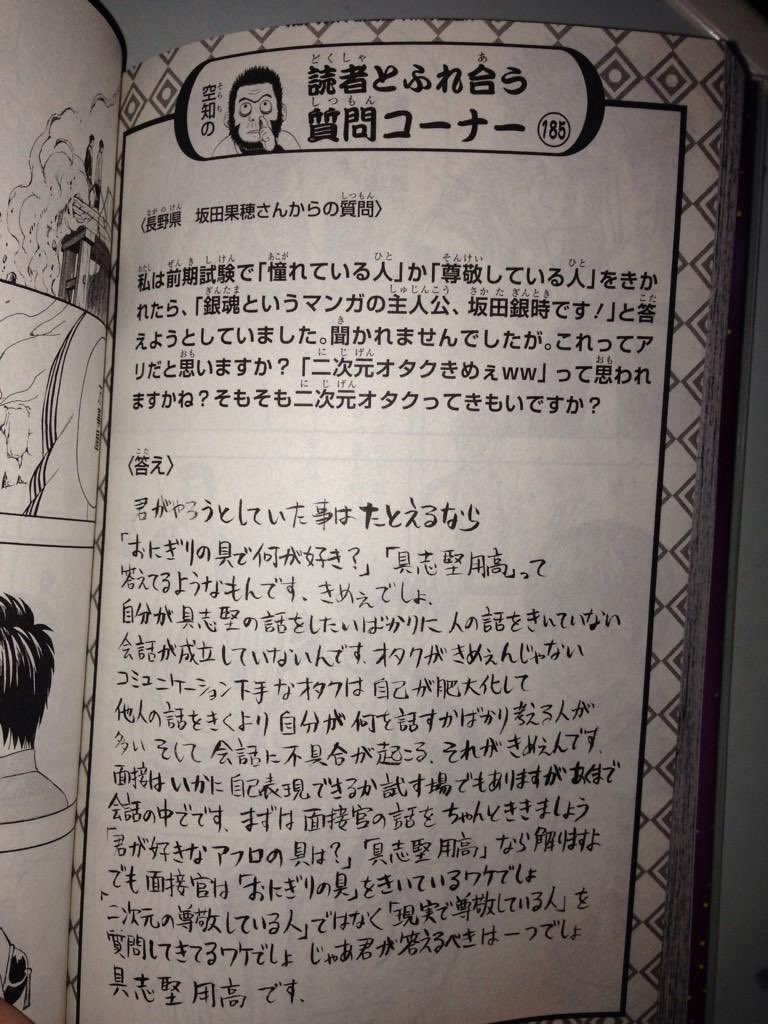 空知の
読者とふれ合う
質問コーナー 185
〈長野県 坂田果穂さんからの質問〉
私は前期試験で「憧れている人」か「尊敬している人」をきか
れたら、「銀魂というマンガの主人公、坂田銀時です!」と答
えようとしていました。聞かれませんでしたが。これってア
リだと思いますか?「二次元オタクきめぇww」って思われ
ますかね?そもそも二次元オタクってきもいですか?
〈答え〉
君がやろうとしていた事はたとえるなら
「おにぎりの具で何が好き?」「具志堅用高」って
答えてるようなもんです、きめぇでしょ、
自分が具志堅の話をしたいばかりに人の話をきいていない
会話が成立していないんです、オタクがきめぇんじゃない
コミュニケーション下手なオタクは自己が肥大化して
他人の話をきくより自分が何を話すかばかり考える人が
多い そして会話に不具合が起こる、それがきめぇんです、
面接はいかに自己表現できるか試す場でもありますがあくまで
会話の中でです、まずは面接官の話をちゃんとききましょう
「君が好きなアフロの具は?」「具志堅用高」なら解りますよ
でも面接官は「おにぎりの具」をきいているワケでしょ
「二次元の尊敬している人」ではなく「現実で尊敬している人」を
質問してきてるワケでしょ じゃあ君が答えるべきは一つでしょ
具志堅用高です、